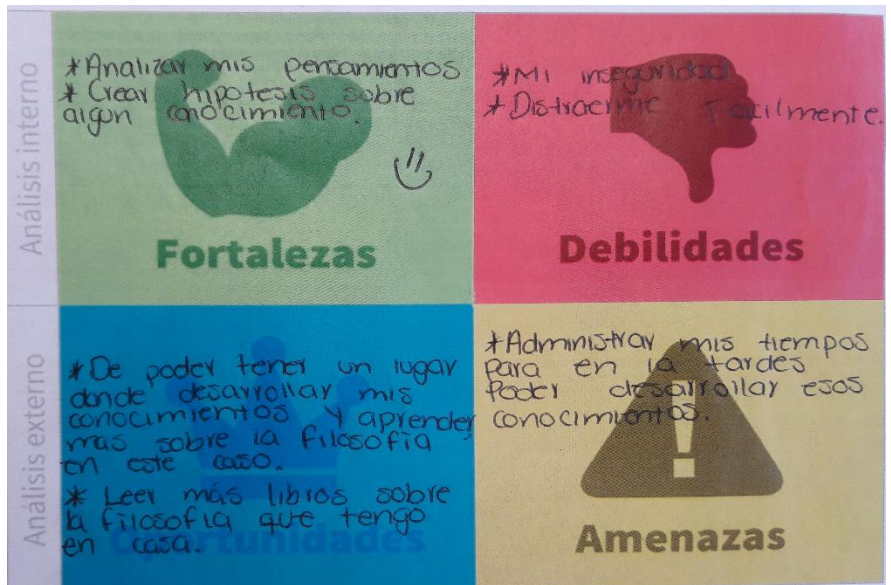 Análisis interno
*Analizar mis pensamientos
* Crear hipotesis sobre
algun conocimiento.
Fortalezas
*Mi inseguridad
*Distraerme facilmente.
Debilidades
Análisis externo
*De poder tener un lugar
donde desarrollar mis
conocimientos y aprender
mas sobre la filosofia
en este caso.
* Leer más libros sobre
la filosofia que tengo
en casa.
Oportunidades
*Administrar mis tiempos
para en la tardes
Poder desarrollar esos
conocimientos.
Amenazas